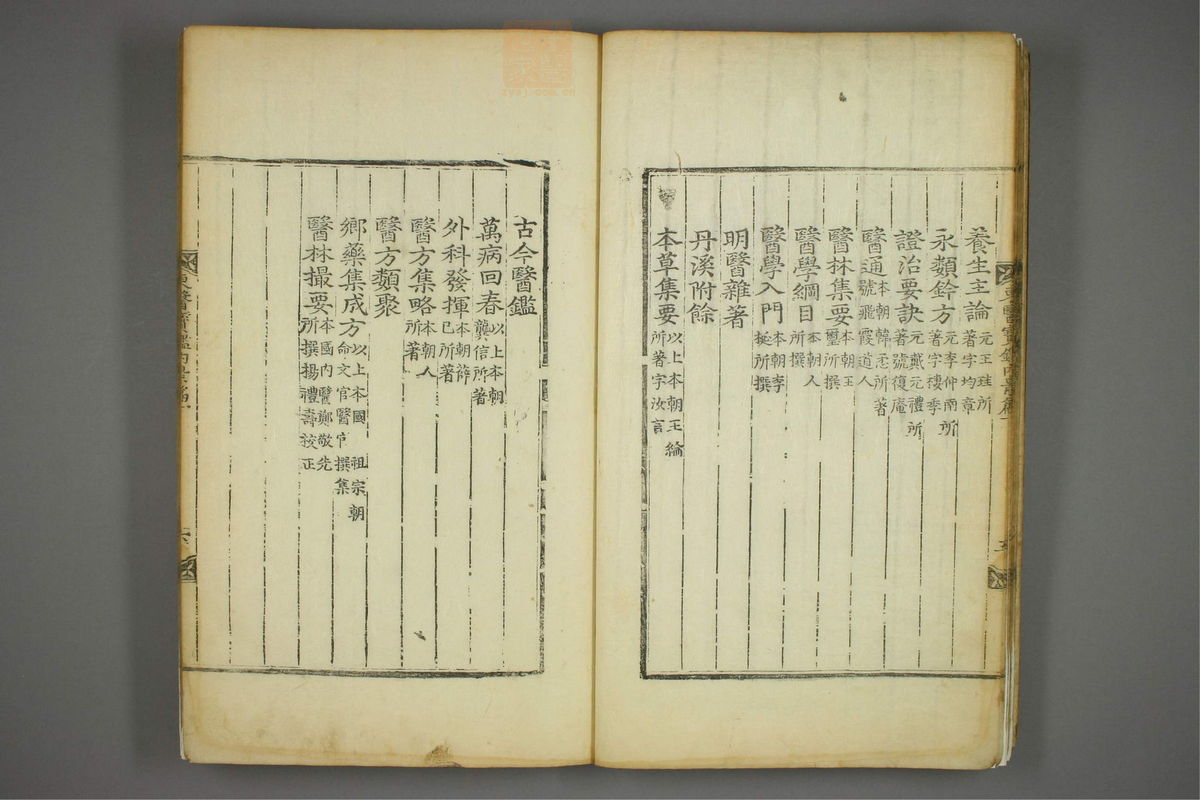 養生主論元王珪所著字均章
永類鈐方元李仲南所著字棲季
證治要訣元戴元禮所著號復庵
醫通本朝韓𢘅所著號飛霞道人
醫林集要本朝王璽所撰
醫學綱目本朝人所撰
醫學入門本朝李梃所撰
明醫雜著
丹溪附餘
本草集要以上本朝王綸所著字汝言
古今醫鑑
萬病回春以上本朝龔信所著
外科發揮本朝薛己所著
醫方集略本朝人所著
醫方類聚
鄕藥集成方以上本國 祖宗朝命文官醫官撰集
醫林撮要本國內醫鄭敬先所撰楊禮壽挍正